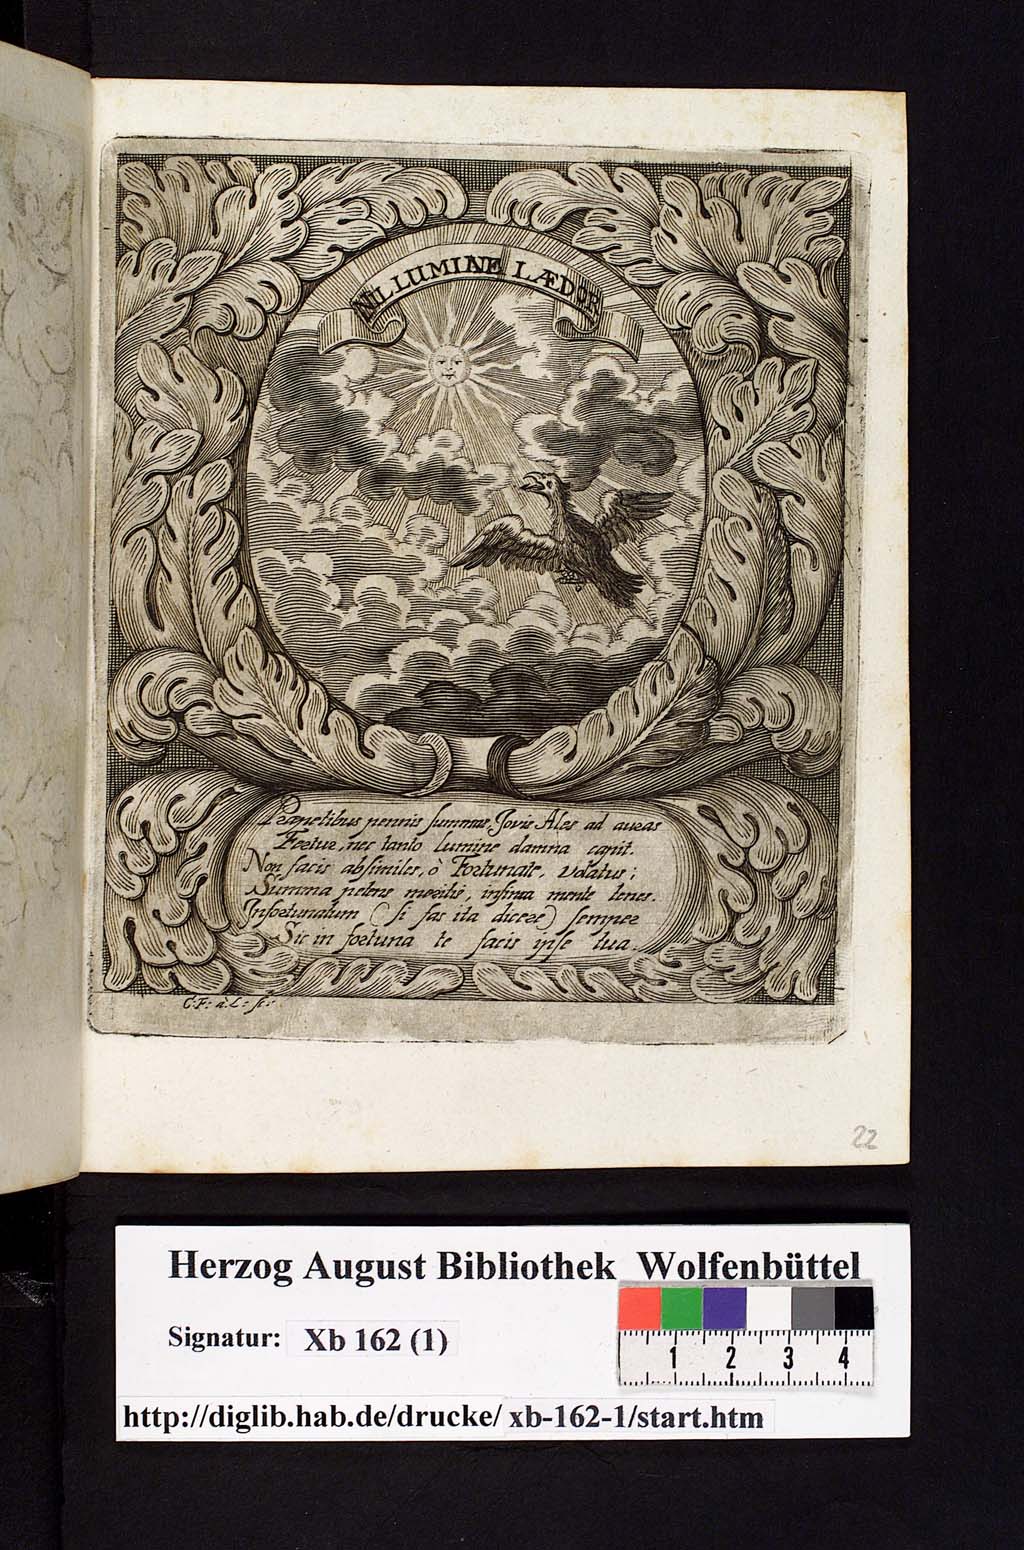 NIL LUMINE LÆDOR
Præpetibus pennis summas Jovis Ales ad auras
Fertur, nec tanto lumine damna capit.
Non facis absimiles, ò Fortunate, volatus;
Summa petens meritis, infima mente tenes.
Infortunatum (si fas ita dicere) semper
Sic in fortuna te facis ipse tua.
C: F: à. L: fe:
22
Herzog August Bibliothek Wolfenbüttel
Signatur: Xb 162 (1)
1 2 3 4
http://diglib.hab.de/drucke/ xb-162-1/start.htm